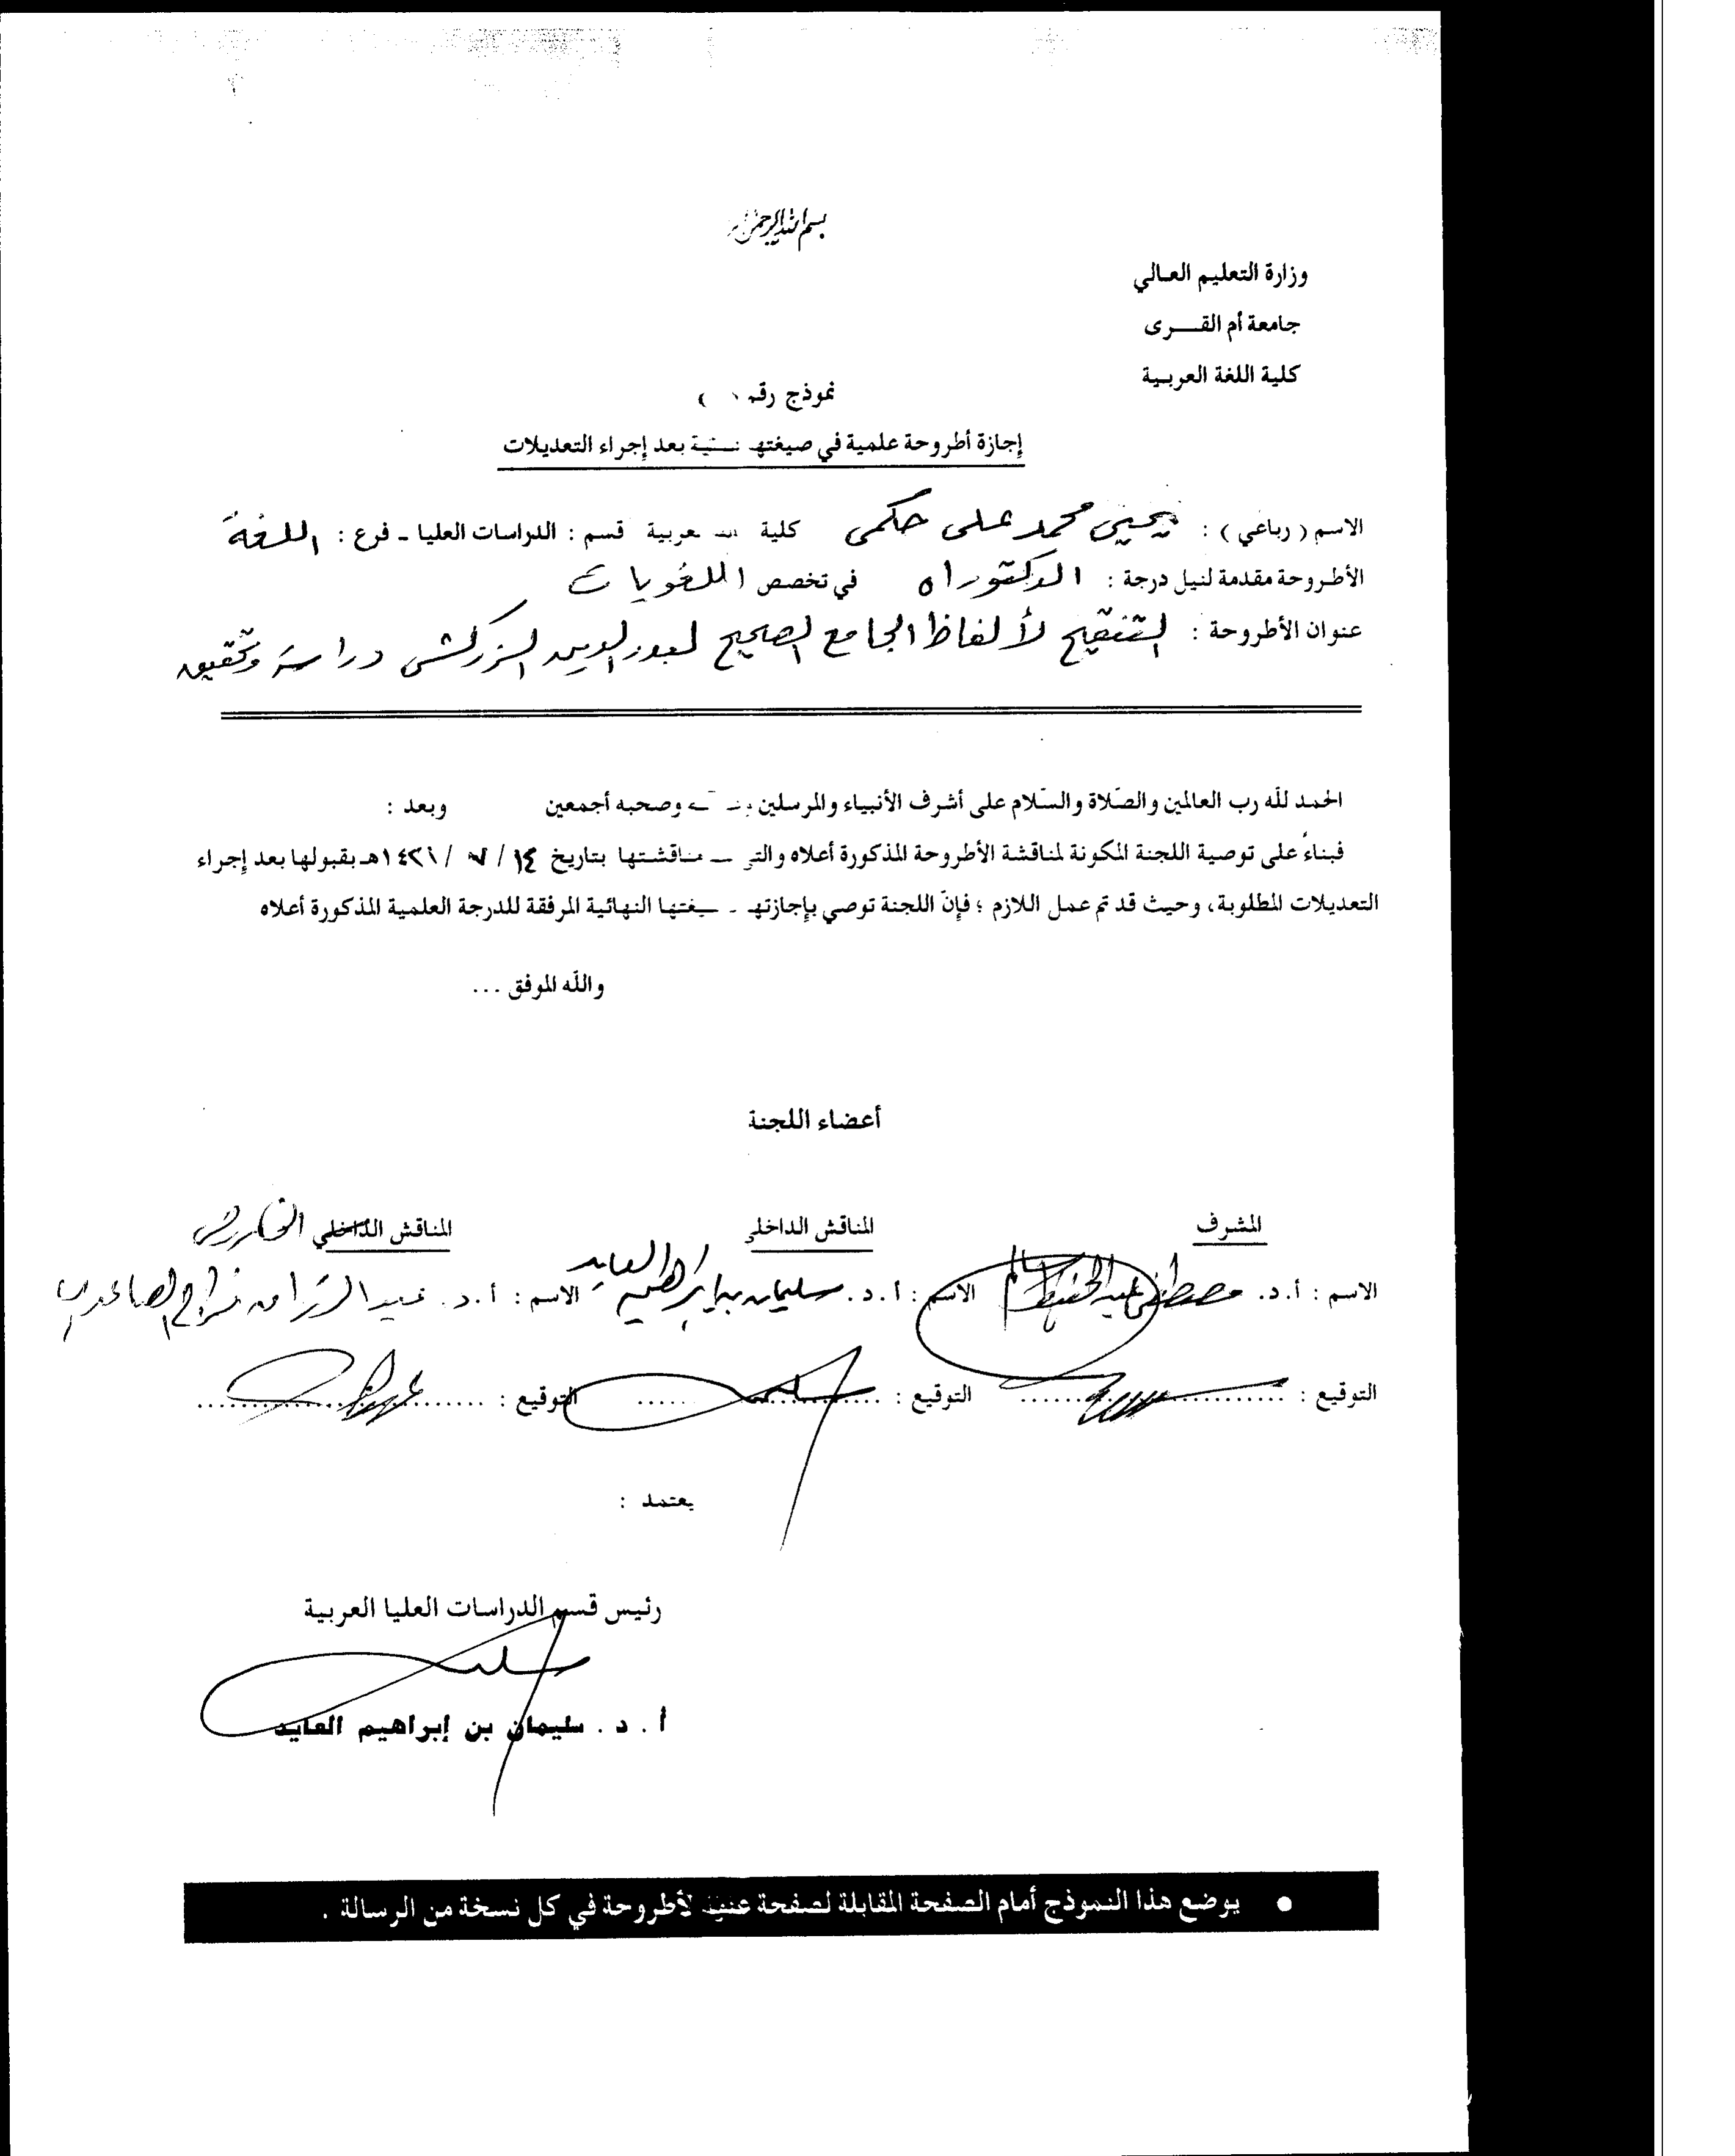 بسم الله الرحمن
وزارة التعليم العالي
جامعة أم القرى
كلية اللغة العربية
نموذج رقم ( )
إجازة أطروحة علمية في صيغتها بعد إجراء التعديلات
الاسم ( رباعي ) : يحيى محمد علي حكمي كلية عربية قسم : الدراسات العليا ـ فرع : اللغة
الأطروحة مقدمة لنيل درجة : الدكتوراه في تخصص اللغويات
عنوان الأطروحة : التنقيح لألفاظ الجامع الصحيح لبدر الدين الزركشي دراسة وتحقيق
الحمد لله رب العالمين والصّلاة والسّلام على أشرف الأنبياء والمرسلين وصحبه أجمعين وبعد :
فبناءً على توصية اللجنة المكونة لمناقشة الأطروحة المذكورة أعلاه والتي مناقشتها بتاريخ ١٤ / ٧ / ١٤٢١هـ بقبولها بعد إجراء
التعديلات المطلوبة، وحيث قد تم عمل اللازم ؛ فإنّ اللجنة توصي بإجازتها النهائية المرفقة للدرجة العلمية المذكورة أعلاه
والله الموفق ...
أعضاء اللجنة
المشرف المناقش الداخلي المناقش الداخلي الخارجي
الاسم : أ.د. مصطفى عبد الحفيظ سالم الاسم : أ.د. سليمان بن إبراهيم العايد الاسم : أ.د. عبد الرزاق فراج الصاعدي
التوقيع : التوقيع : التوقيع :
يعتمد :
رئيس قسم الدراسات العليا العربية
أ . د . سليمان بن إبراهيم العايد
● يوضع هذا النموذج أمام الصفحة المقابلة لصفحة الأطروحة في كل نسخة من الرسالة .